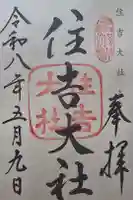 住吉大社
奉拝
住吉大社
住吉大社
令和八年五月九日